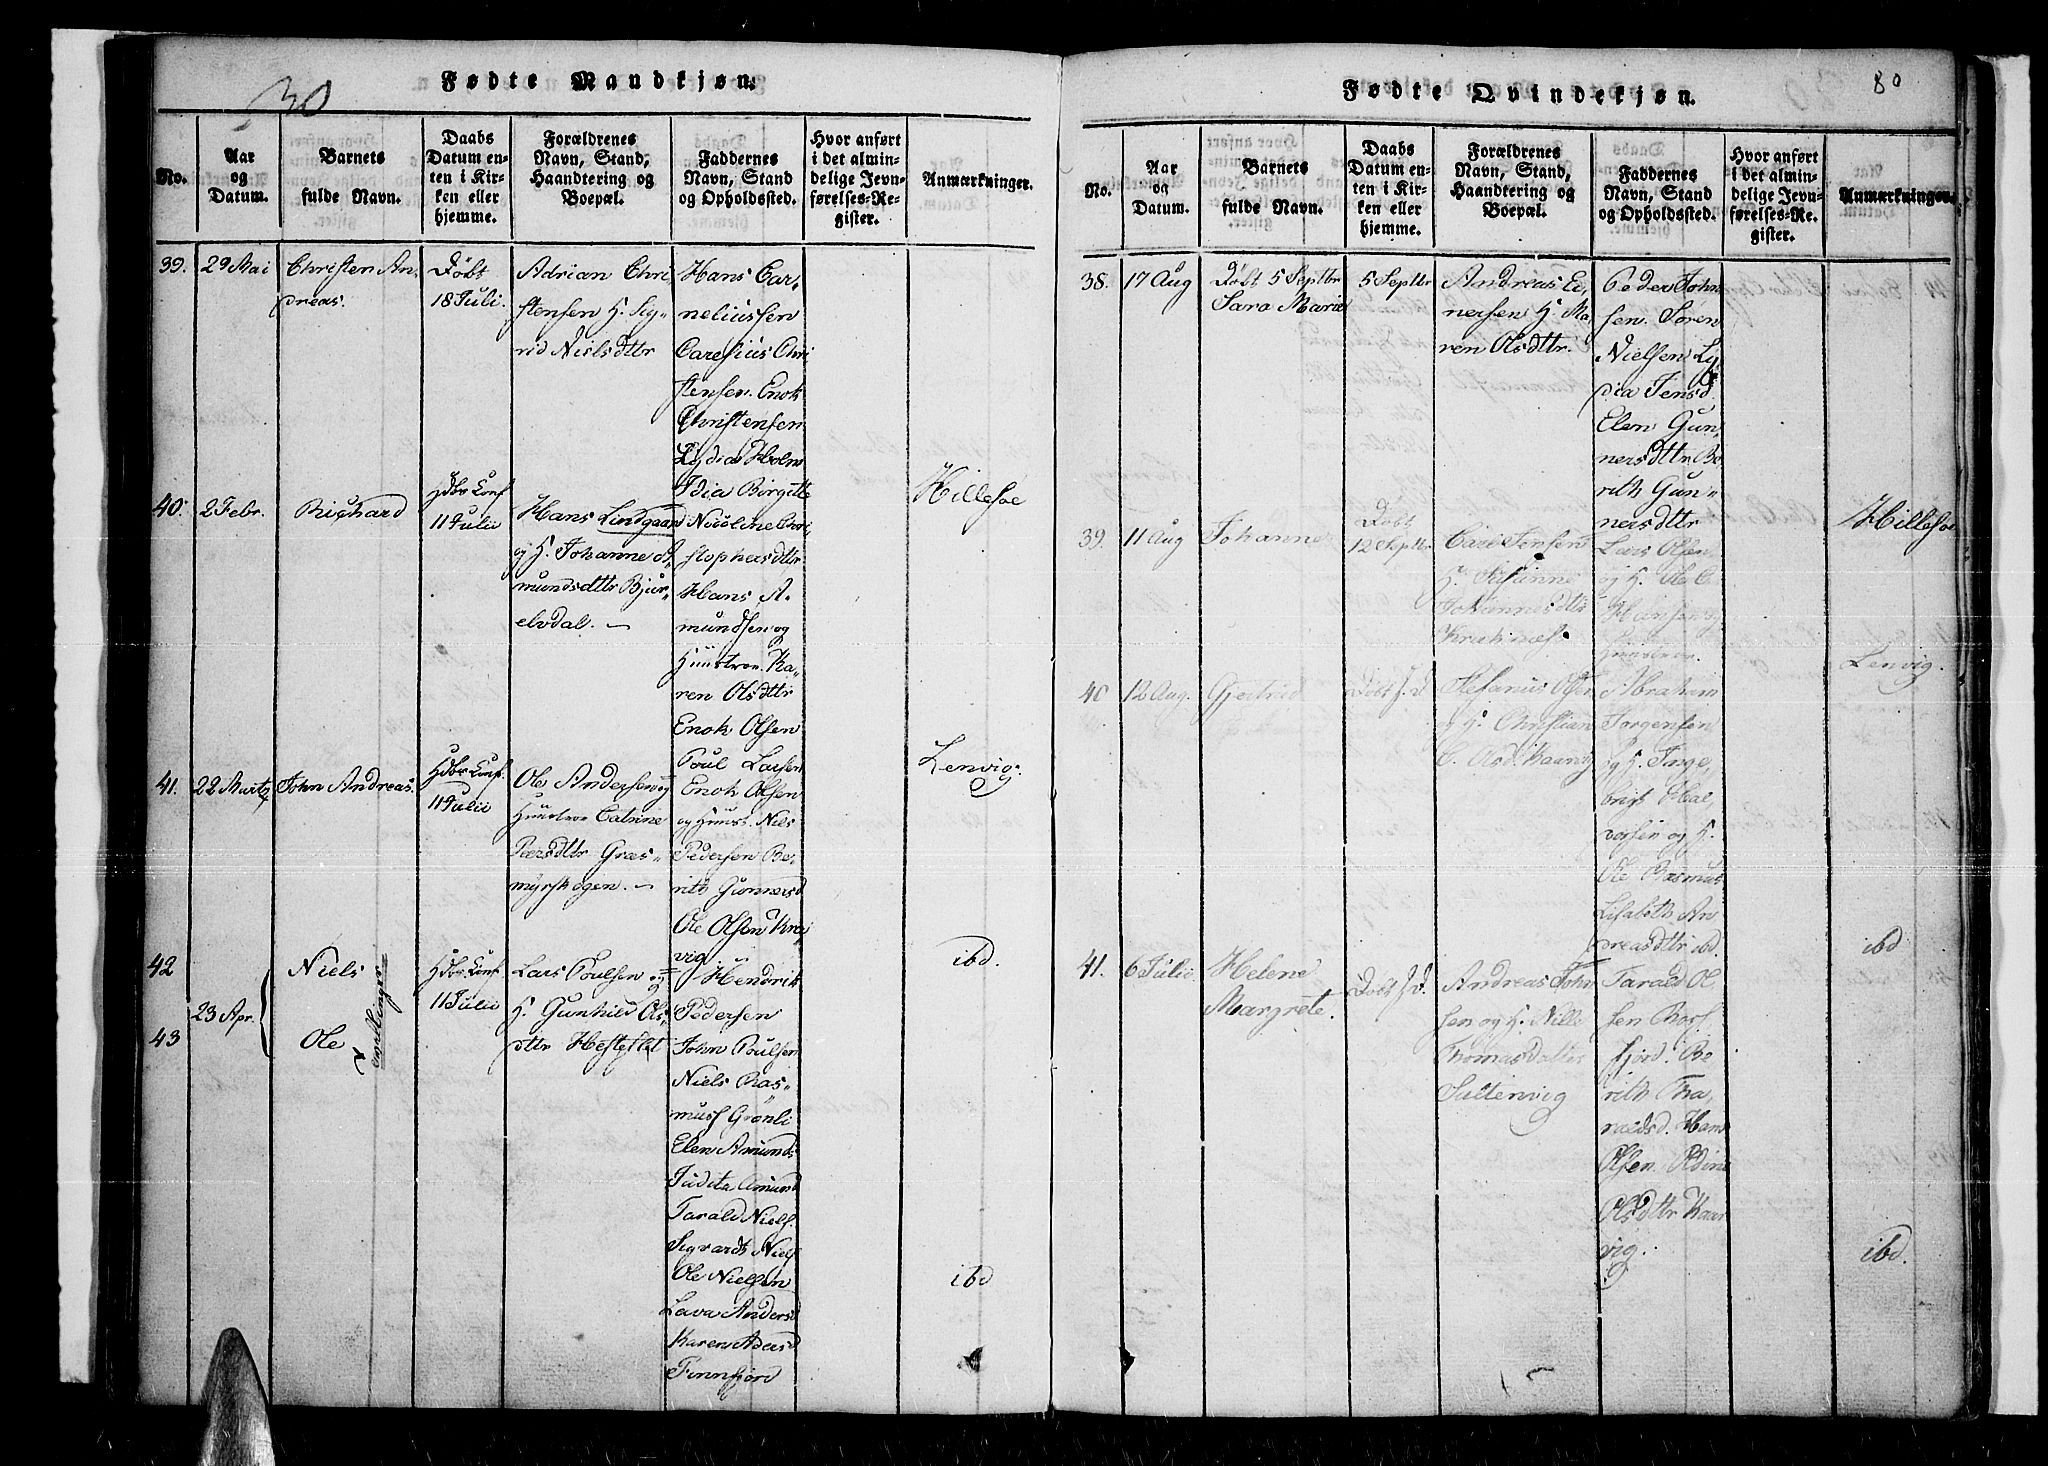 30
Fødte Mandkjøn.
No.
Aar
og
Datum.
Barnets
fulde Navn.
Daabs
Datum en-
ten i Kir-
ken eller
hjemme.
Forældrenes
Navn, Stand,
Haandtering og
Boepæl.
Faddernes
Navn, Stand
og Opholdssted.
Hvor anført
i det almin-
delige Jevn-
førelses-Re-
gister.
Anmærkninger.
39.
29 Mai
Christen An-
dreas.
Døbt
18 Juli.
Adrian Chri-
stensen H. Sig-
rid Nielsdttr
Hans Cor-
neliussen
Carelius Chri
stensen. Enok
Christensen
Lydia Holm
Idia Birgitte
Nicoline Chri-
stophersdttr
40.
2 Febr.
Righard
Hdbr Conf
11 Julii
Hans Lindgaard
og H. Johanne A-
mundsdttr Bjur-
elvdal. —
Hans A-
mundsen og
Huustroe. Ka-
ren Olsdttr
Enok Olsen
Poul Larsen
Hillesøe
41.
22 Martz
John Andreas.
Hdbr Conf.
11 Julii
Ole Andersen og
Huustroe Catrine
Pærsdttr Græs-
myrskogen. —
Enok Olsen
og Huust. Niels
Pedersen Be-
rith Gunnersd
Ole Olsen Kræ-
vig.
Lenvig.
42
43
23 Apr.
Niels
Ole
tvillinger
Hdbr Conf
11 Julii
Lars Poulsen og
H. Gunhild Ols-
dttr Hesteslet
Hendrik
Pedersen
John Poulsen
Niels Ras-
muss Grønli
Elen Amunds
Judita Amund
Tarald Niels.
Sigvardt Niels
Ole Nielsen
Lava Andersd
Karen Adersd
Finnfjord
ibd.
ibd
80
Fødte Qvindekjøn.
No.
Aar
og
Datum.
Barnets
fulde Navn.
Daabs
Datum en-
ten i Kir-
ken eller
hjemme.
Forældrenes
Navn, Stand,
Haandtering og
Boepæl.
Faddernes
Navn, Stand
og Opholdssted.
Hvor anført
i det almin-
delige Jevn-
førelses-Re-
gister.
Anmærkninger.
38.
17 Aug
Døbt 5 Septbr
Sara Marie
5 Septbr
Andreas Ei-
nersen H. Ma
ren Olsdttr.
Peder John
sen. Søren
Nielsen Ly
dia Jensd.
Elen Gun-
nersdttr. Be
rith Gun-
nersdttr
Hillesøe
39.
11 Aug
Johanne
Døbt
12 Septbr
Carl Jensen
H. Susanne
Johannesdttr
Lars Olsen
og H. Ole C.
Hansen og
Huustroe.
Lenvig.
40
12 Aug.
Gjertrud
Døbt s. D.
Stefanus Olsen
og H. Christian
Abraham
Jørgensen
og H. Inge-
brigt Hal-
vorsen og H.
Ole Rasmus
Lisabeth An
dreasdttr ibd.
ibd
41.
6 Julii
Helene
Margrete.
Døbt s. D.
Andreas John
sen og H. Nille
Thomasdatter
Sultenvig
Tarald Ol
sen Ross
fjord. Be
rith Tha-
raldsd. Hans
Olsen. Odine
Olsdttr Kaar
vig.
ibd.